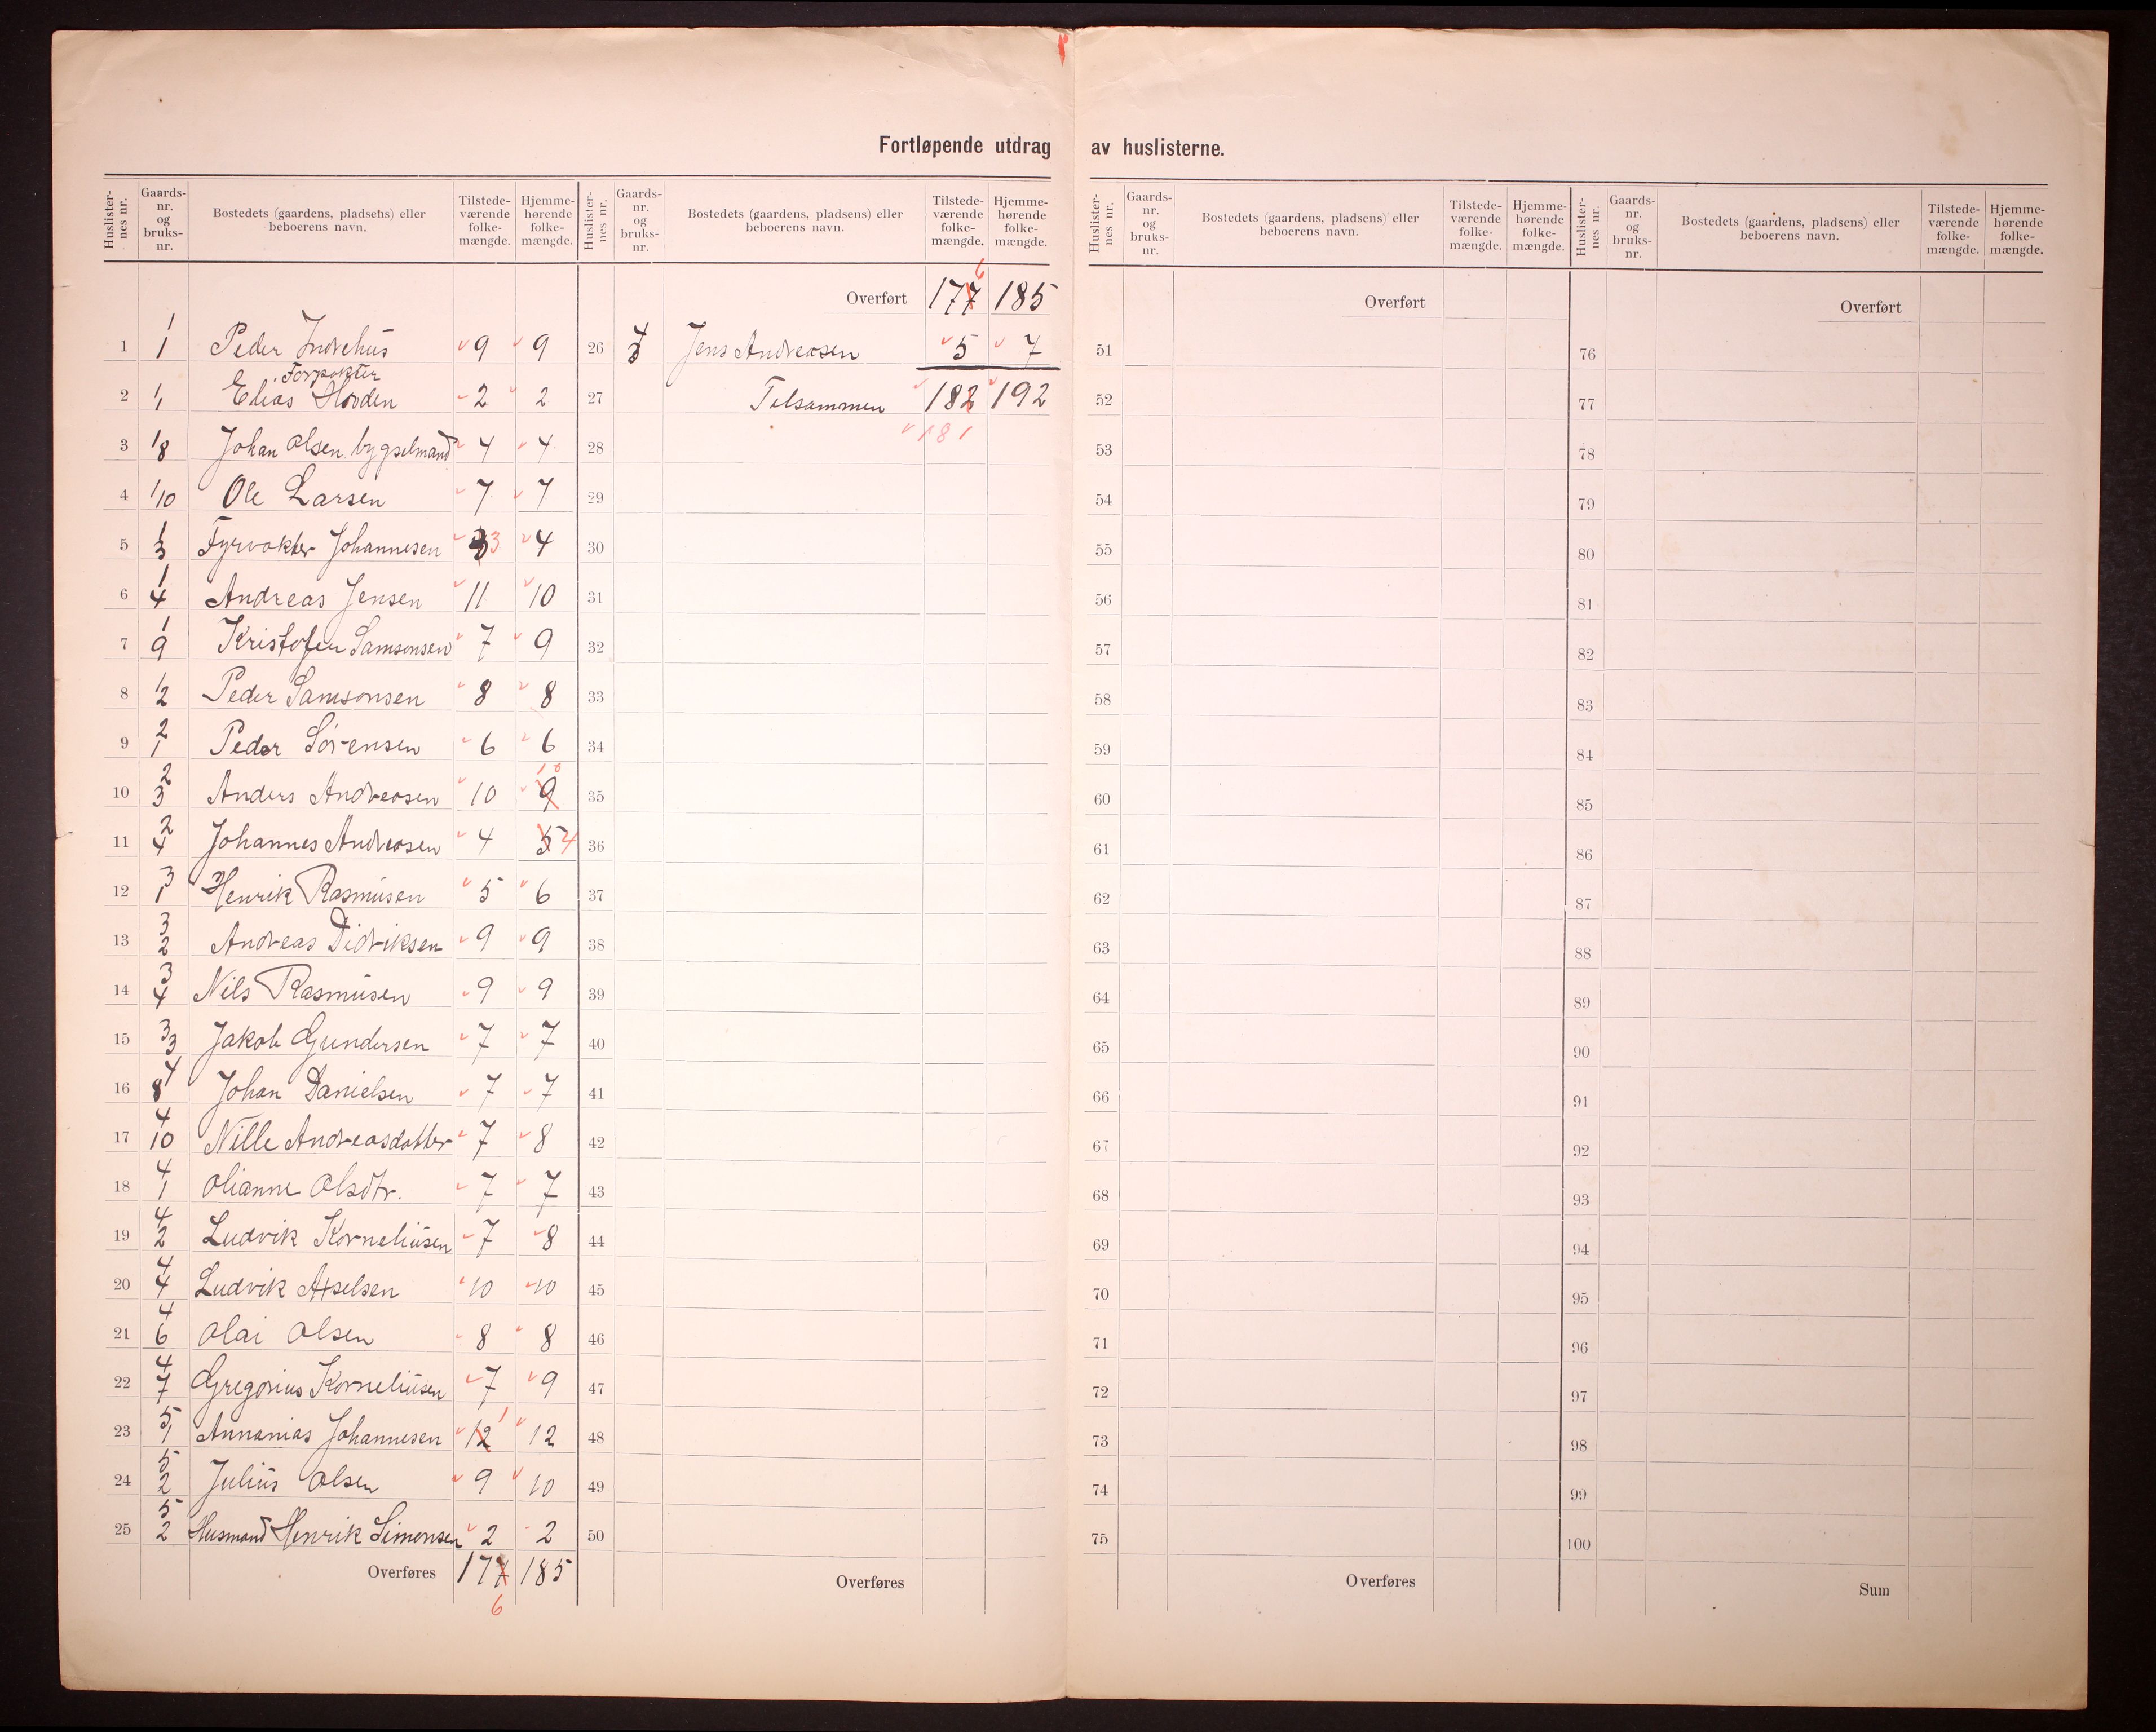 Fortløpende utdrag av huslisterne.
Huslister-nes nr. Gaards-nr. og bruks-nr. Bostedets (gaardens, pladsens) eller beboerens navn. Tilstede-værende folke-mængde. Hjemme-hørende folke-mængde.
1 1/1 Peder Indrehus 9 9
2 1/1 Forpakter Elias Hovden 2 2
3 1/8 Johan Olsen bygselmand 4 4
4 1/10 Ole Larsen 7 7
5 1/3 Fyrvokter Johannesen 3 3 4
6 1/4 Andreas Jensen 11 10
7 1/9 Kristofer Samsonsen 7 9
8 1/2 Peder Samsonsen 8 8
9 2/1 Peder Sørensen 6 6
10 2/3 Anders Andreasen 10 9 10
11 2/4 Johannes Andreasen 4 5 4
12 3/1 Henrik Rasmusen 5 6
13 3/2 Andreas Didriksen 9 9
14 3/4 Nils Rasmusen 9 9
15 3/3 Jakob Gundersen 7 7
16 4/8 Johan Danielsen 7 7
17 4/10 Nille Andreasdatter 7 8
18 4/1 Olianne Olsdtr. 7 7
19 4/2 Ludvik Korneliusen 7 8
20 4/4 Ludvik Axselsen 10 10
21 4/6 Olai Olsen 8 8
22 4/7 Gregorius Korneliusen 7 9
23 5/1 Annanias Johannesen 12 1 12
24 5/2 Julius Olsen 9 10
25 5/2 Husmand Henrik Simonsen 2 2
Overføres 177 6 185
Huslister-nes nr. Gaards-nr. og bruks-nr. Bostedets (gaardens, pladsens) eller beboerens navn. Tilstede-værende folke-mængde. Hjemme-hørende folke-mængde.
Overført 177 6 185
26 Jens Andreasen 5 7
27 Tilsammen 182 192
181
28
29
30
31
32
33
34
35
36
37
38
39
40
41
42
43
44
45
46
47
48
49
50
Overføres
Huslister-nes nr. Gaards-nr. og bruks-nr. Bostedets (gaardens, pladsens) eller beboerens navn. Tilstede-værende folke-mængde. Hjemme-hørende folke-mængde.
Overført
51
52
53
54
55
56
57
58
59
60
61
62
63
64
65
66
67
68
69
70
71
72
73
74
75
Overføres
Huslister-nes nr. Gaards-nr. og bruks-nr. Bostedets (gaardens, pladsens) eller beboerens navn. Tilstede-værende folke-mængde. Hjemme-hørende folke-mængde.
Overført
76
77
78
79
80
81
82
83
84
85
86
87
88
89
90
91
92
93
94
95
96
97
98
99
100
Sum